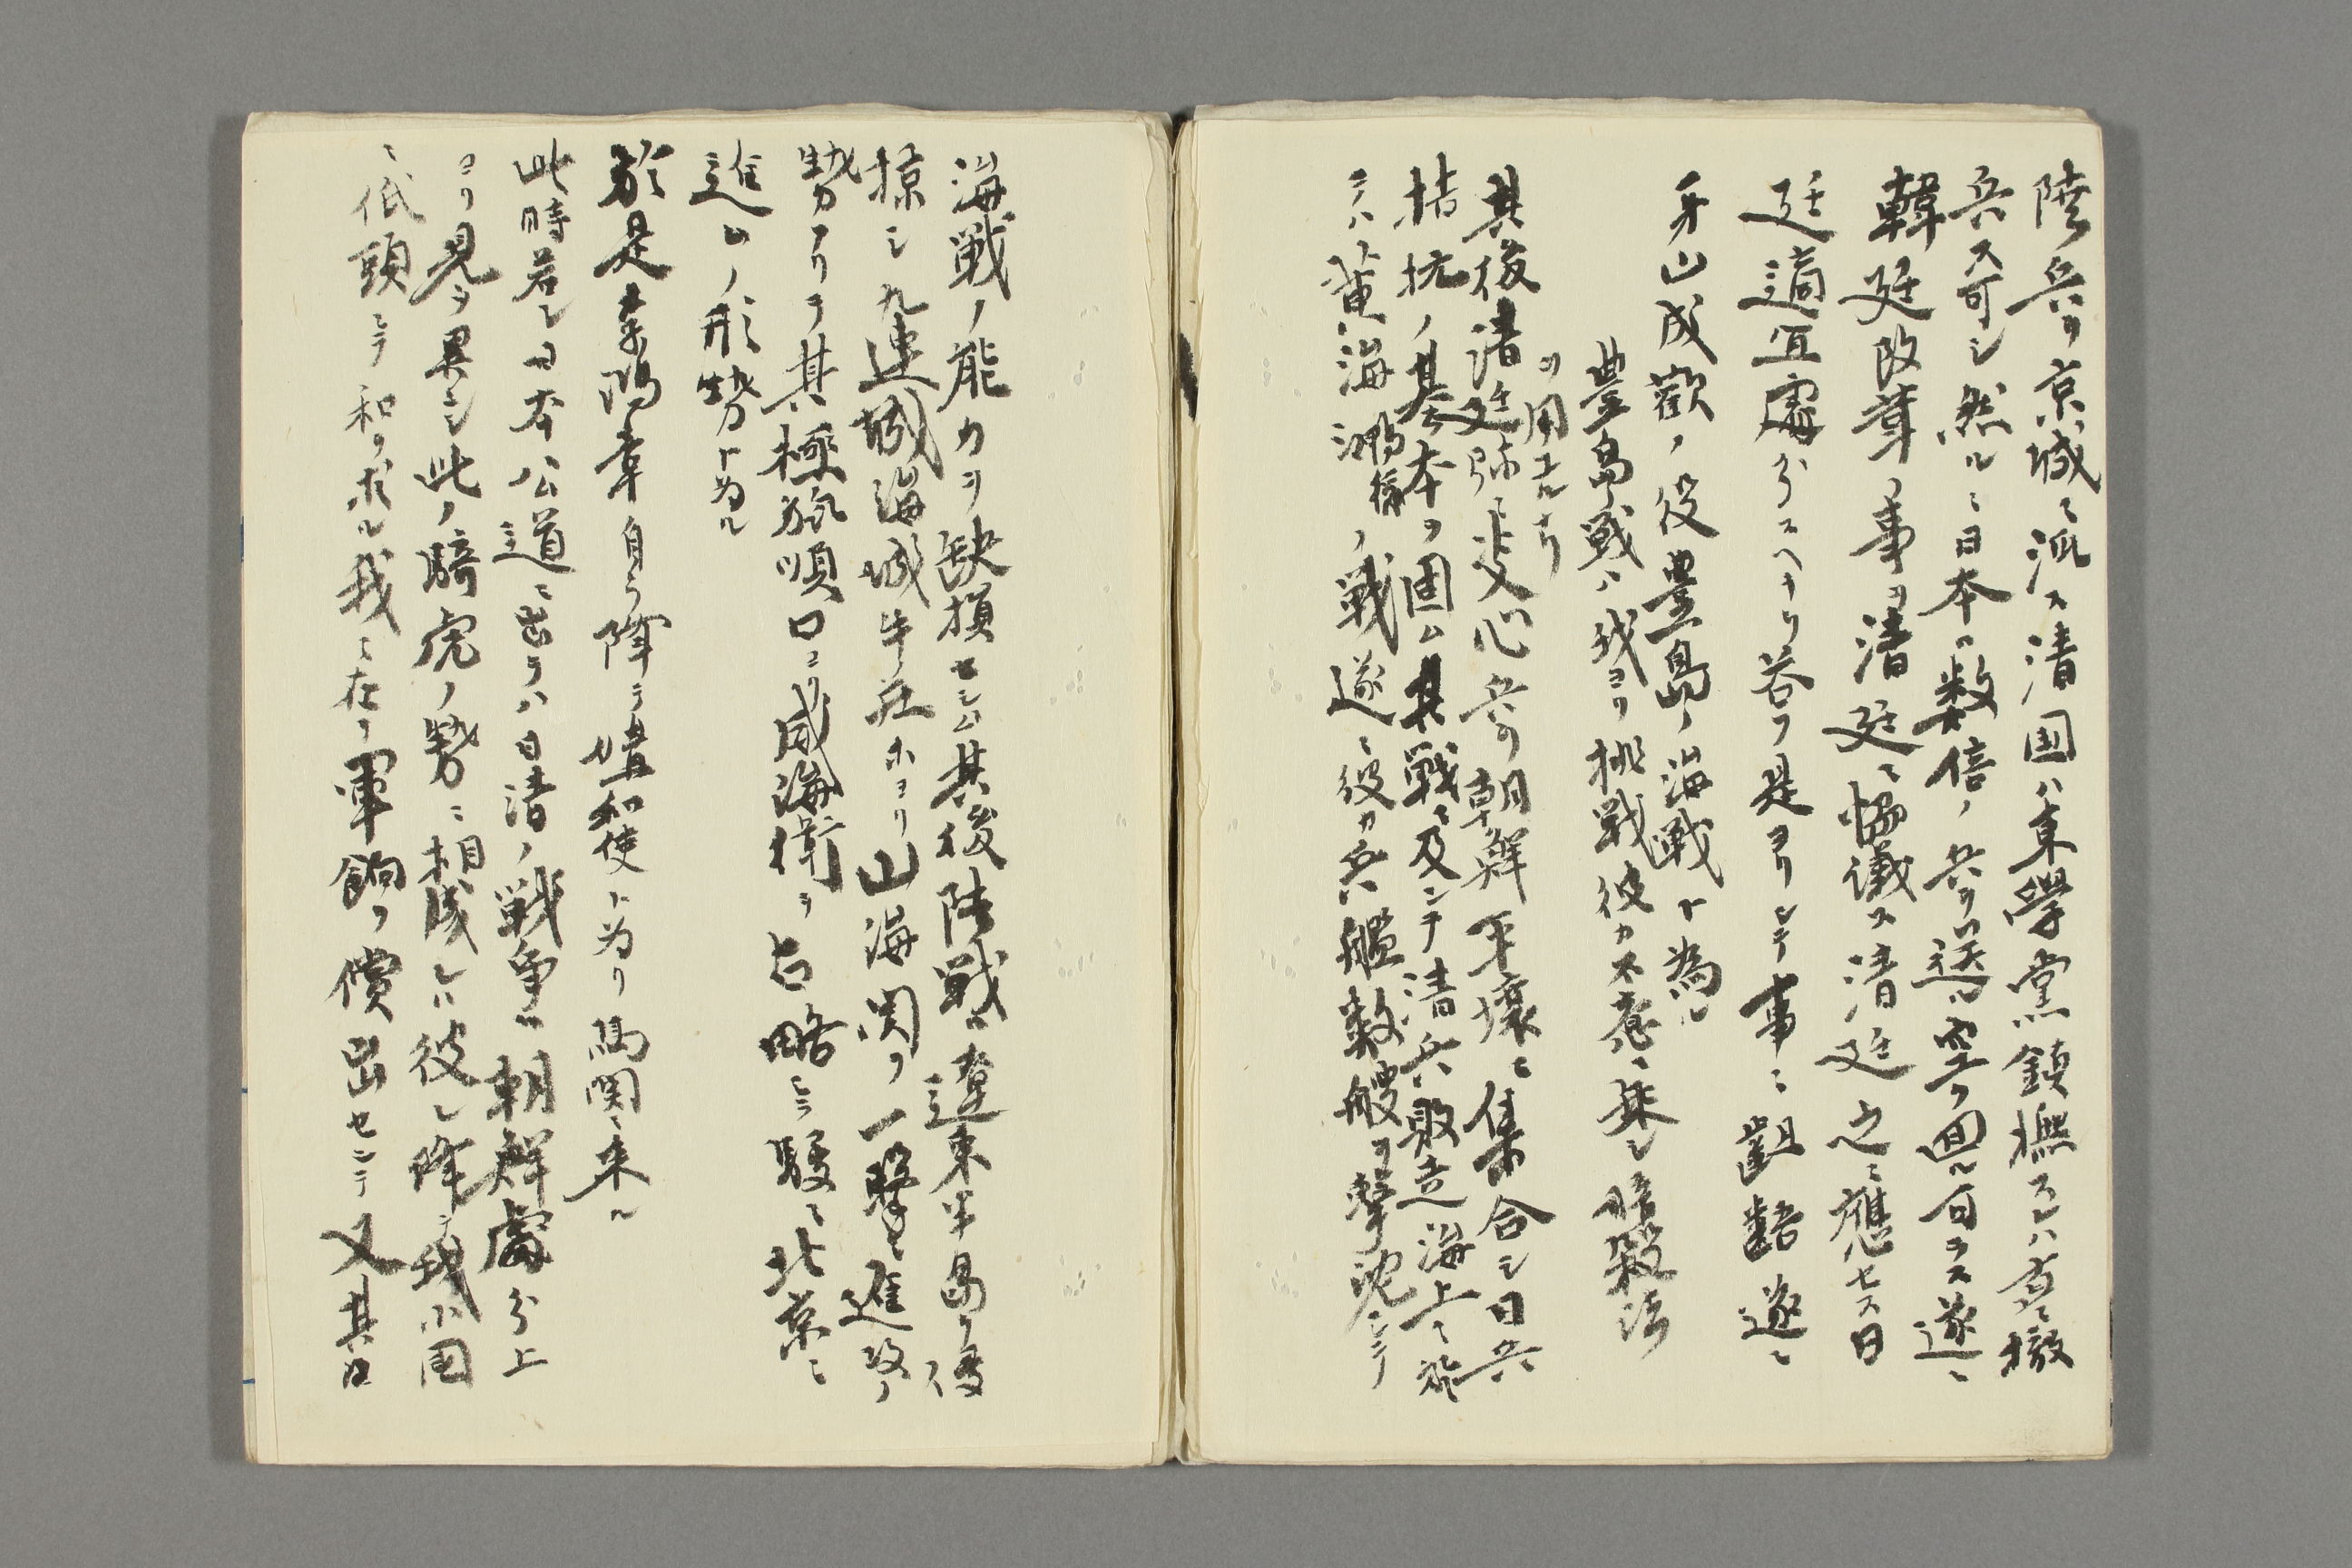 陸兵ヲ京城ニ派ス清国ハ東學黨鎮撫スレハ直ニ撤
兵ス可シ然ルニ日本ハ数倍ノ兵ヲ送ル空ク回ル可ラス遂ニ
韓廷改革ノ事ヲ清廷ニ協議ス清廷之ニ應セス日
廷適宜處分スヘナリ答フ是ヨリシテ事ニ齟齬遂ニ
牙山成歓ノ役豊島ノ海戦ト為ル
豊島戦ハ我ヨリ挑戦彼カ不意ニ乗シ暗殺法
ヲ用エルナリ
其後清廷弥々決心兵ヲ朝鮮平壌ニ集合シ日兵
拮抗ノ基本ヲ固ム其戦ニ及ンテ清兵敗走海上ニ於
テハ黄海鴻様ノ戦遂ニ彼カ兵艦数艘ヲ撃沈シテ
海戦ノ能力ヲ缺損セシム其後陸戦ハ遼東半島ヲ侵
掠シ九連城海城牛荘ホヨリ山海関ヲ一撃ニ進攻ノ
勢アリテ其極旅順口ヨリ威海衛ヲ占略シテ駸々北京ニ
進ムノ形勢ト為ル
於是李鴻章自ラ降ヲ媾和使ト為リ馬関ニ来ル
此時若シ日本公道ニ出ラハ日清ノ戦争ハ朝鮮處分上
ヨリ見ヲ異ニシ此ノ騎虎ノ勢ニ相成シハ彼レ降テ我小国
ニ低頭シテ和ヲ求ル我ニ在テ軍餉ヲ償出セシテ又其日